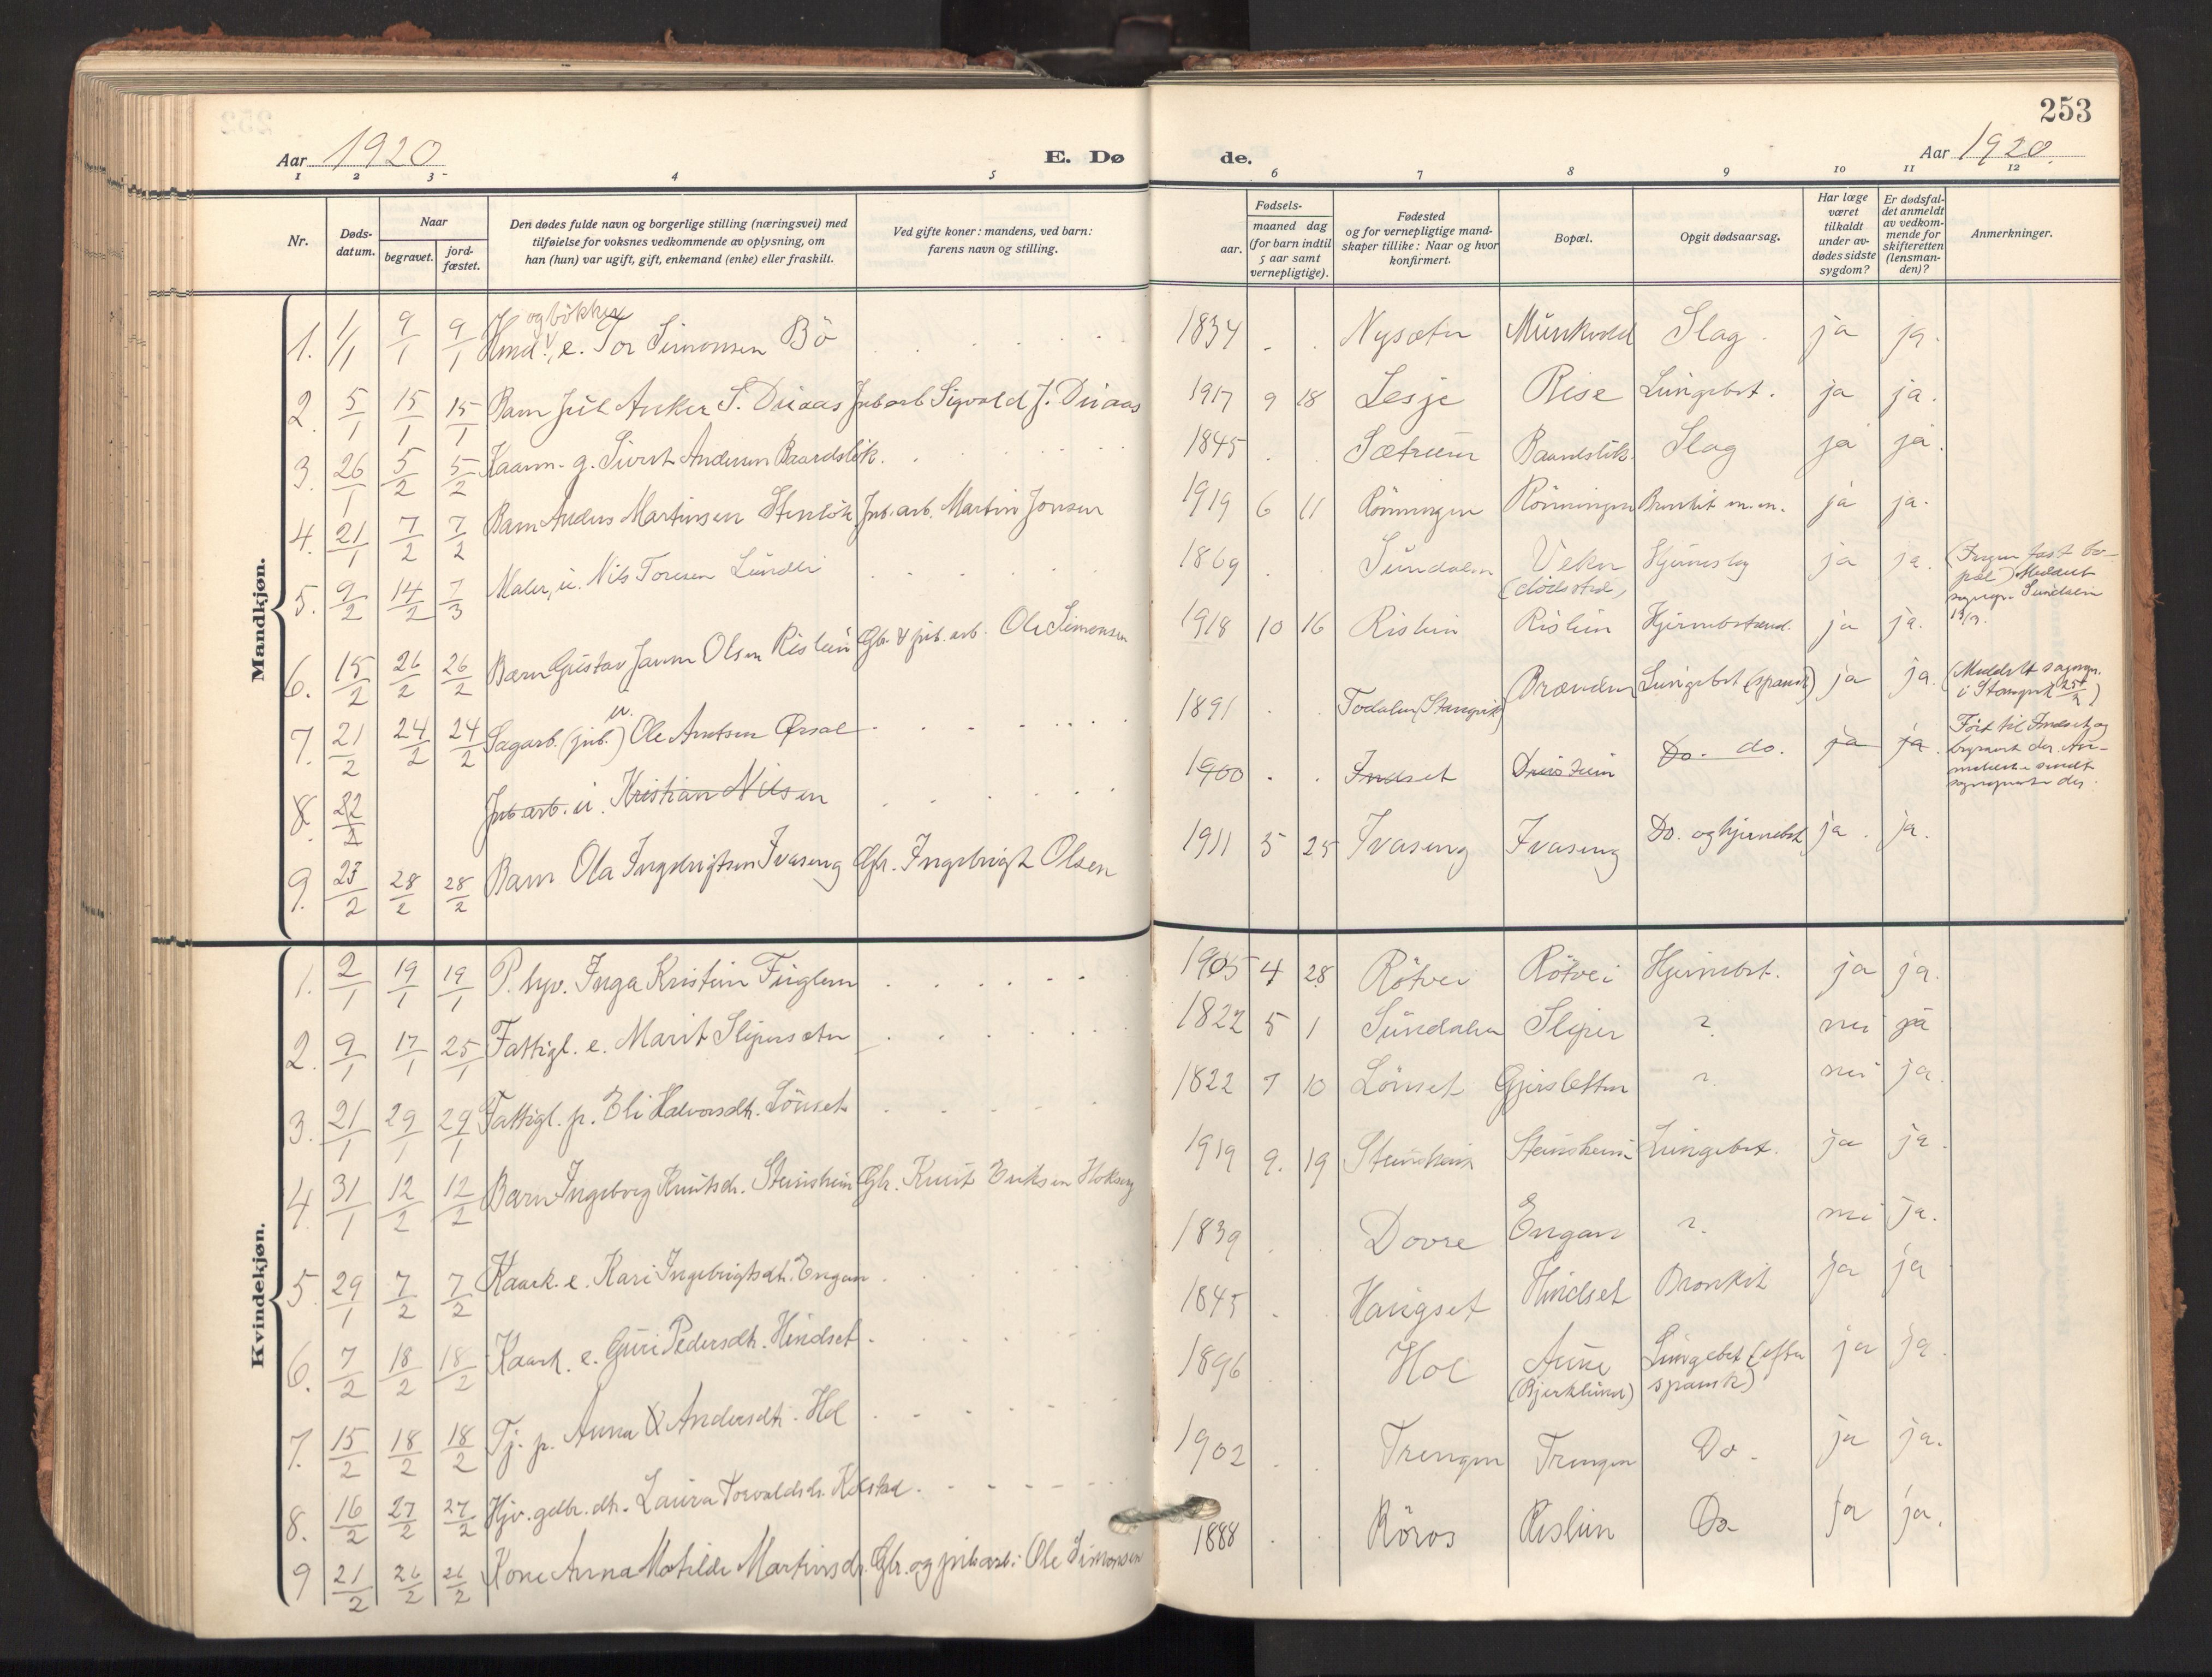 253
Aar 1920
E. Dø
de.
Aar 1920.
1 2 3 4 5 6 7 8 9 10 11 12
Nr.
Døds-
datum.
Naar
begravet.
jord-
fæstet.
Den dødes fulde navn og borgerlige stilling (næringsvei) med
tilføielse for voksnes vedkommende av oplysning, om
han (hun) var ugift, gift, enkemand (enke) eller fraskilt.
Ved gifte koner: mandens, ved barn:
farens navn og stilling.
Fødsels-
aar.
maaned dag
(for barn indtil
5 aar samt
vernepligtige).
Fødested
og for vernepligtige mand-
skaper tillike: Naar og hvor
konfirmert.
Bopæl.
Opgit dødsaarsag.
Har læge
været
tilkaldt
under av-
dødes sidste
sygdom?
Er dødsfal-
det anmeldt
av vedkom-
mende for
skifteretten
(lensman-
den)?
Anmerkninger.
Mandkjøn.
og bökker
1. 1/1 9/1 9/1 Hmd., e. Tor Simonsen Bö 1834 Nysæter Munkvold Slag. ja ja.
2. 5/1 15/1 15/1 Barn Jul Anker S. Duaas Jnb.arb. Sigvald J. Duaas 1917 9 18 Lesje Rise Lungebet. ja ja.
3. 26/1 5/2 5/2 Kaarm. g. Sivert Andersen Baardslök. 1845 Sætrum Baardslök. Slag ja ja.
4. 21/1 7/2 7/2 Barn Anders Martinsen Stenlök Jnb.arb. Martin Jonsen 1919 6 11 Rönningen Rönningen Bronkit m.m. ja ja.
5. 9/2 14/2 7/3 Maler, u. Nils Toresen Lundli 1869 Sundalen Veken Hjerneslag ja ja. (Ingen fast bo-
(dödssted) pæl) Meddelt
sognepr. Sundalen
6. 15/2 26/2 26/2 Barn Gustav Jarun Olsen Rislien Gbr. & jnb. arb. Ole Simonsen 1918 10 16 Rislien Rislien Hjernebetænd. ja ja.
7. 21/2 24/2 24/2 Sagarb. (jnb.) u. Ole Arntsen Ørsal 1891 Todalen (Stangvik) Brænden Lungebet (spansk) ja ja. (Meddelt sognepr.
i Stangvik 25/2)
8. 22/2 Jnb.arb. u. Kristian Nilsen 1900 Indset Driestuen Do. do. ja ja. Fört til Indset og
begravet der.
9. 23/2 28/2 28/2 Barn Ola Ingebrigtsen Ivaseng Gbr. Ingebrigt Olsen 1911 5 25 Ivaseng Ivaseng Do. og hjernebet. ja. ja.
Kvindekjøn.
1. 2/1 19/1 19/1 P. hjv. Inga Kristine Fuglem 1905 4 28 Rötvei Rötvei Hjernebet. ja ja.
2. 9/1 17/1 25/1 Fattigl. e. Marit Slipersæter 1822 5 1 Sundalen Sliper ? nei ja
3. 21/1 29/1 29/1 Fattigl. p. Eli Halvorsdtr. Lönset 1822 7 10 Lönset Gjersletten ? nei ja.
4 31/1 12/2 12/2 Barn Ingeborg Knutsdr. Steinsheim Gbr. Knut Eriksen Hokseng 1919 9. 19 Steinsheim Steinsheim Lungebet. ja ja.
5. 29/1 7/2 7/2 Kaark. e. Kari Ingebrigtsdtr. Engan 1839 Dovre Engan ? nei ja.
6. 7/2 18/2 18/2 Kaark. e. Guri Pedersdtr. Hindset. 1845 Haugset Hindset Bronkit ja ja
7. 15/2 18/2 18/2 Tj. p. Anna Andersdtr. Hol 1896 Hol Aune Lungebet (efter
(Bjerklund) spansk) ja ja.
8. 16/2 27/2 27/2 Hjv. gdbr. dtr. Laura Torvaldsdr. Kolstad. 1902 Trengen Trengen Do. ja ja.
9 21/2 26/2 26/2 Kone Anna Matilde Martinsdr. Gbr. og jnb.arb. Ole Simonsen 1888 Röros Rislien Do ja ja.